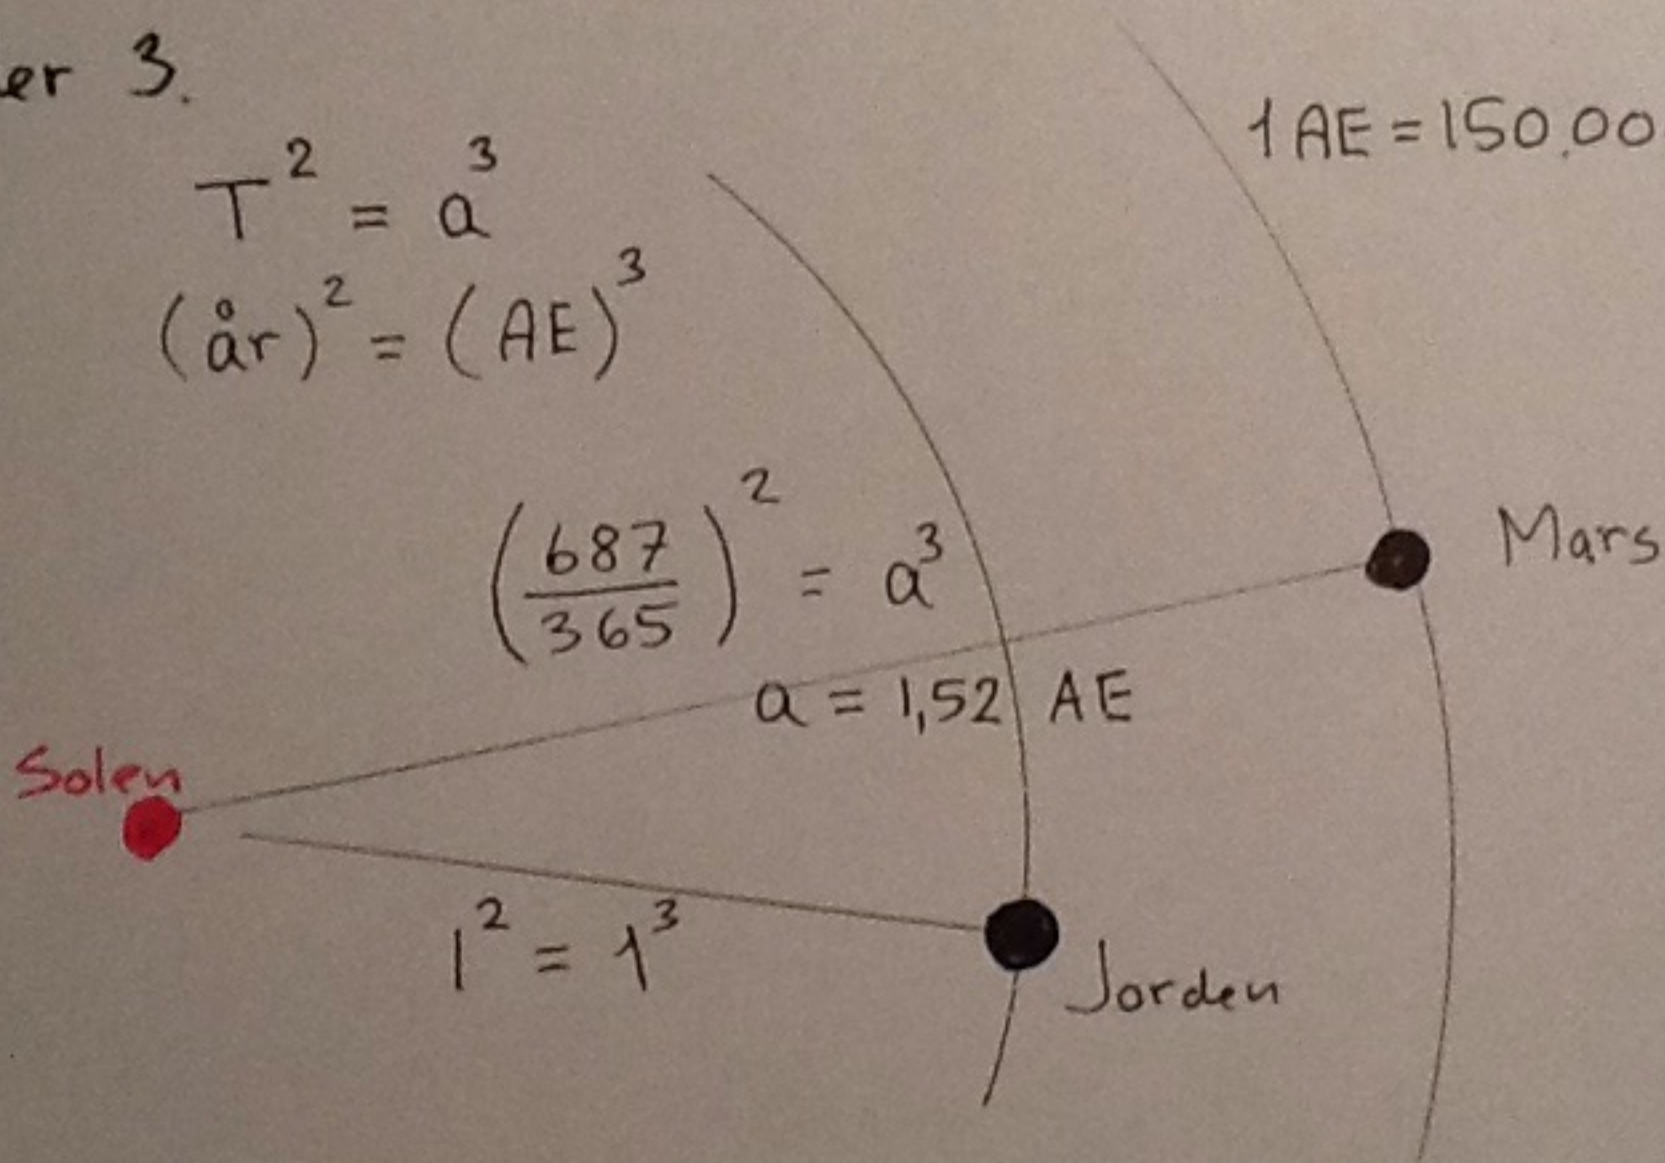 er 3.
T² = a³
1 AE = 150.00
(år)² = (AE)³
(687/365)² = a³
Mars
a = 1,52 AE
Solen
1² = 1³
Jorden